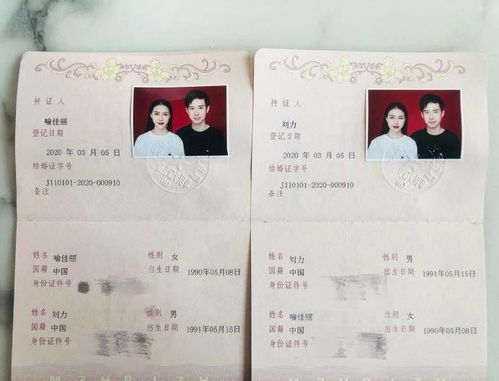 持证人
喻佳丽
登记日期
2020 年 03 月 05 日
结婚证字号
J110101-2020-000910
备注
姓名 喻佳丽 性别 女
国籍 中国 出生日期 1990年05月08日
身份证件号
姓名 刘力 性别 男
国籍 中国 出生日期 1991年05月15日
身份证件号
持证人
刘力
登记日期
2020 年 03 月 05 日
结婚证字号
J110101-2020-000910
备注
姓名 刘力 性别 男
国籍 中国 出生日期 1991年05月15日
身份证件号
姓名 喻佳丽 性别 女
国籍 中国 出生日期 1990年05月08日
身份证件号